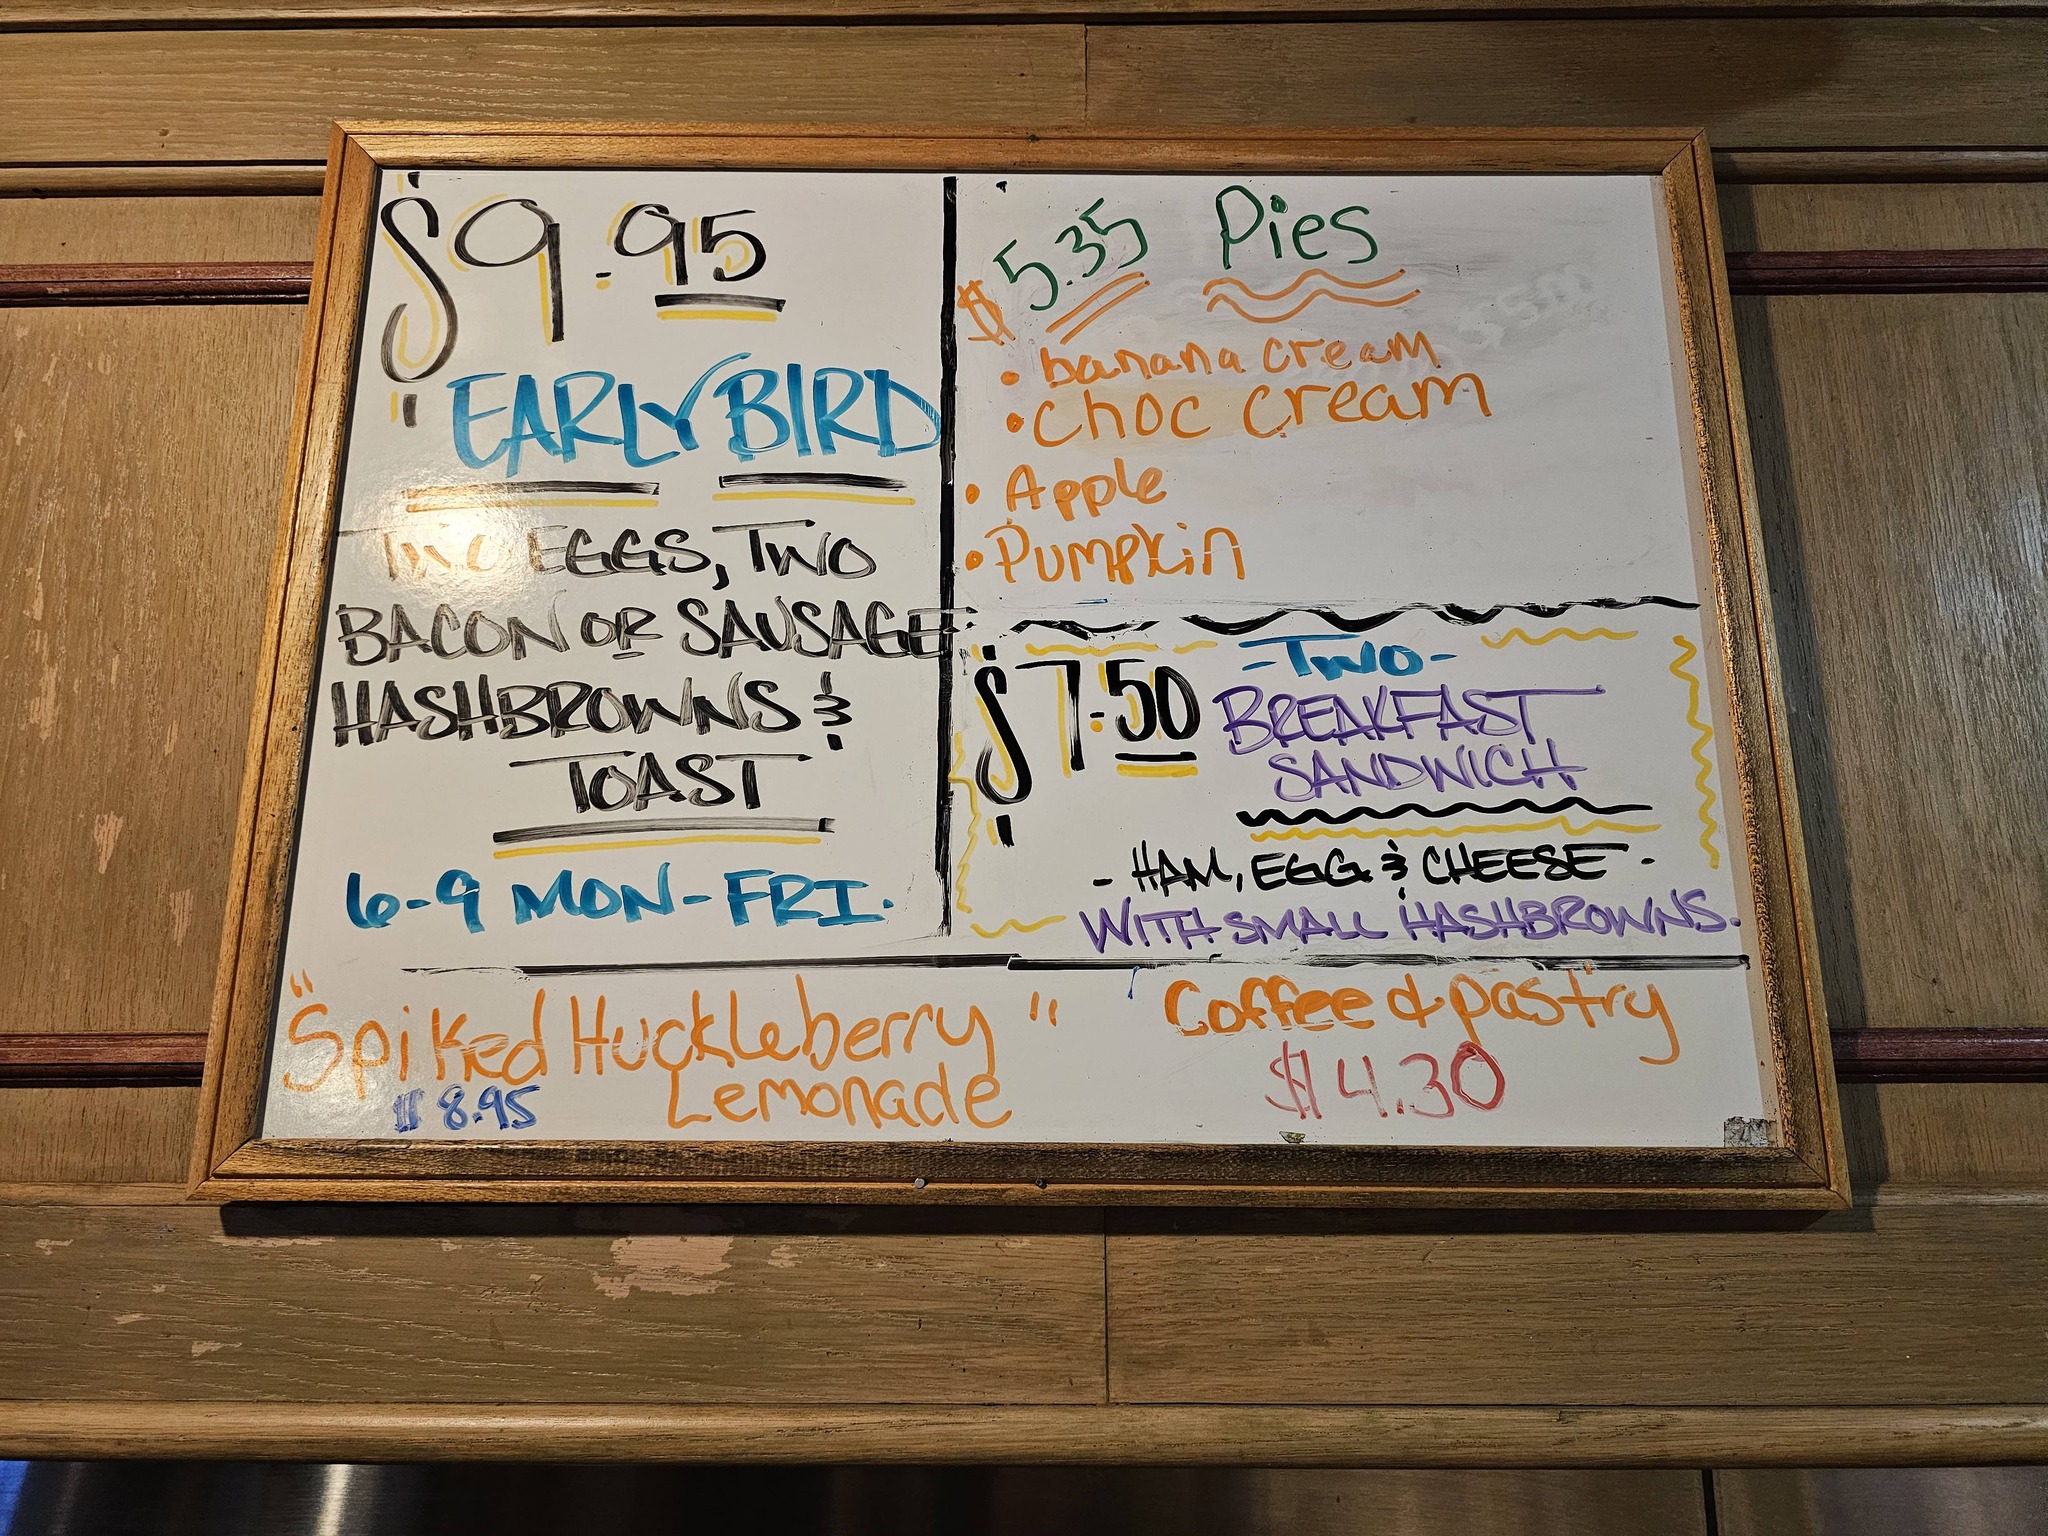 $9.95
EARLY BIRD
TWO EGGS, TWO
BACON OR SAUSAGE
HASHBROWNS &
TOAST
6-9 MON-FRI.
$5.35 Pies
• banana cream
• Choc cream
• Apple
• Pumpkin
$7.50
-TWO-
BREAKFAST
SANDWICH
- HAM, EGG & CHEESE -
WITH SMALL HASHBROWNS.
"Spiked Huckleberry"
Lemonade
$8.95
Coffee & pastry
$4.30